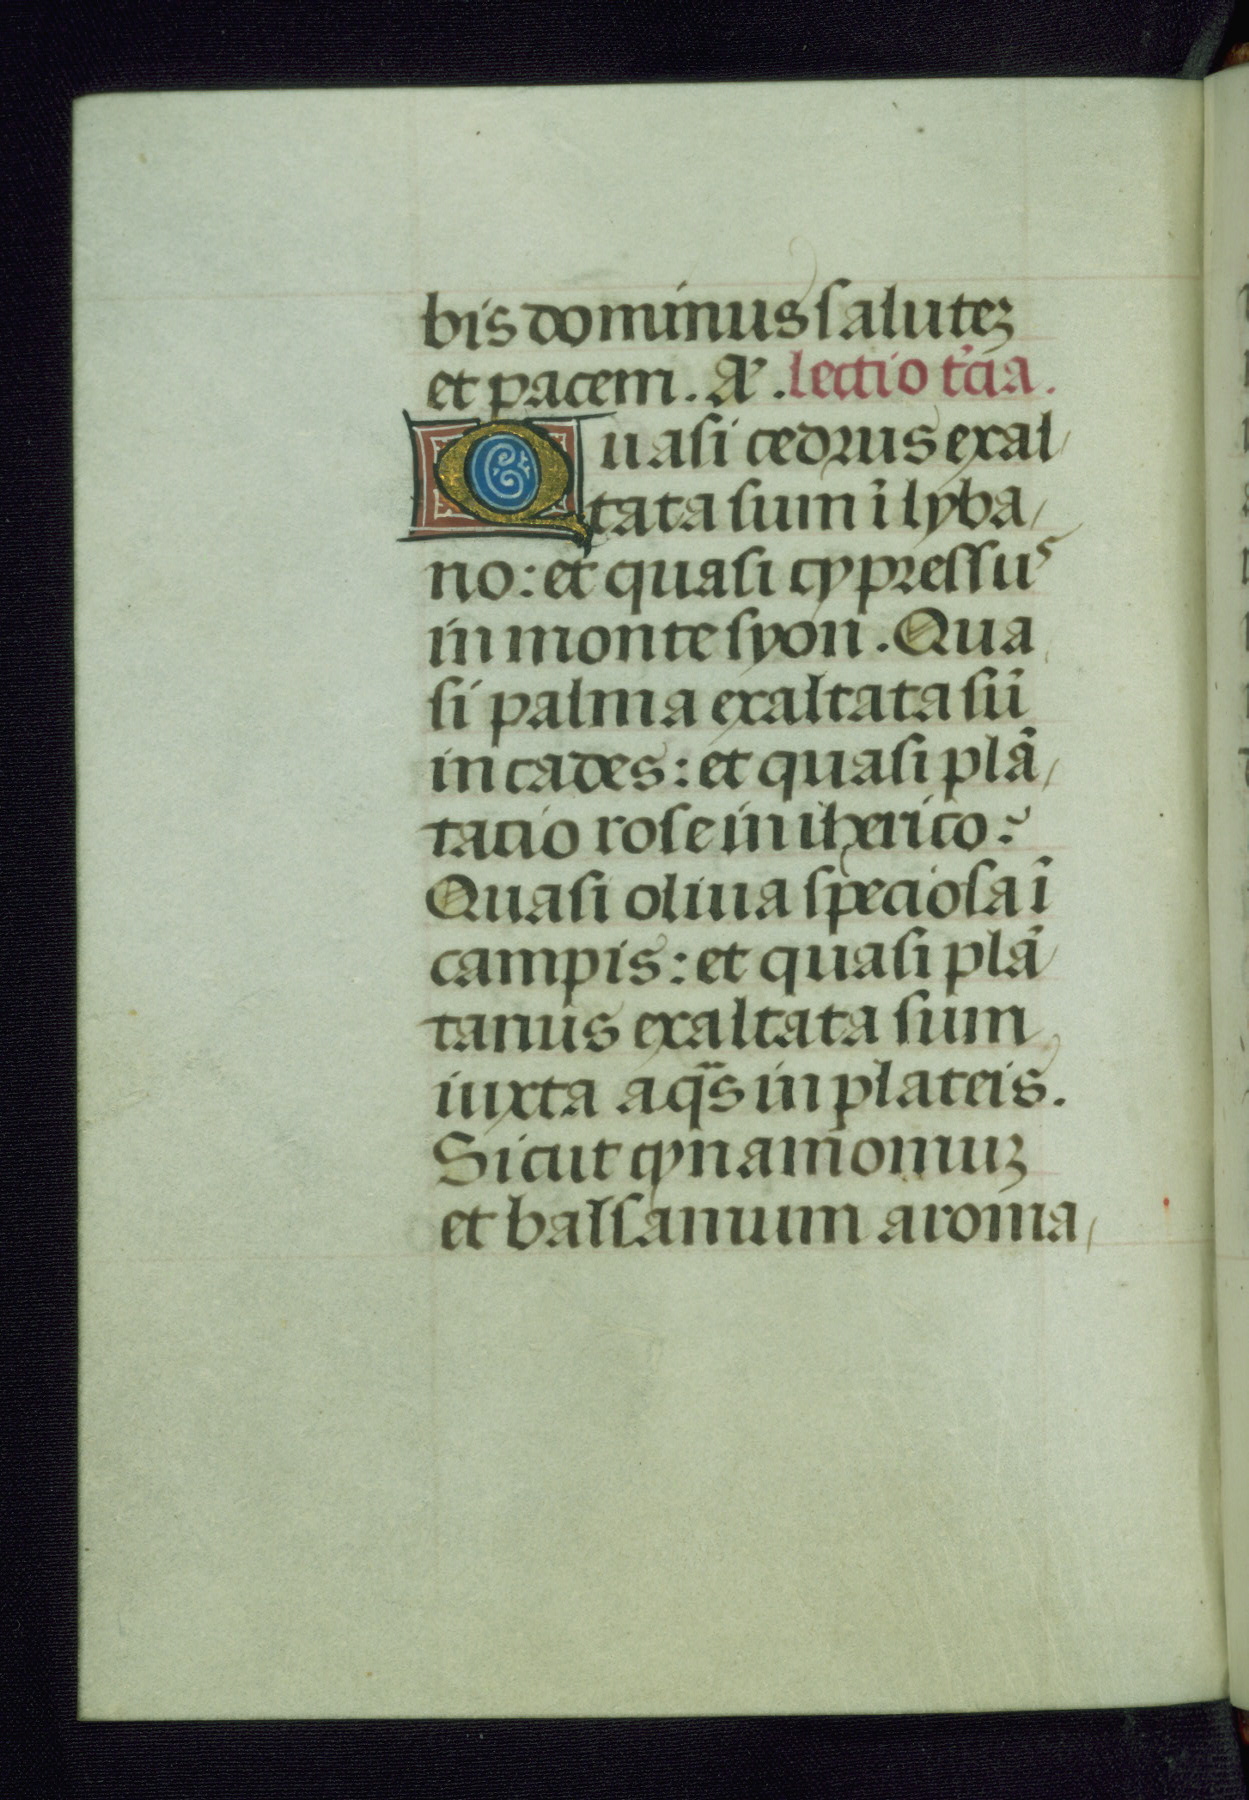 bis dominus saluteꝫ
et pacem. A᷎. lectio t᷎cia.
Quasi cedrus exal
tata sum ī lyba
no: et quasi cypressuˢ
in monte syon. Qua
si palma exaltata sū
in cades: et quasi plā
tacio rose in iherico:
Quasi oliua speciosa ī
campis: et quasi plā
tanus exaltata sum
iuxta aq̄s in plateis.
Sicut cynamomuꝫ
et balsamum aroma